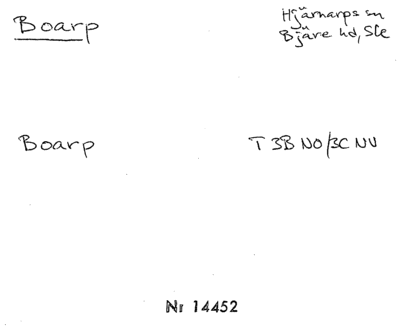 Boarp
Hjärnarps sn
Bjäre hd, Sce
Boarp
T 3B NO/3C NV
Nr 14452